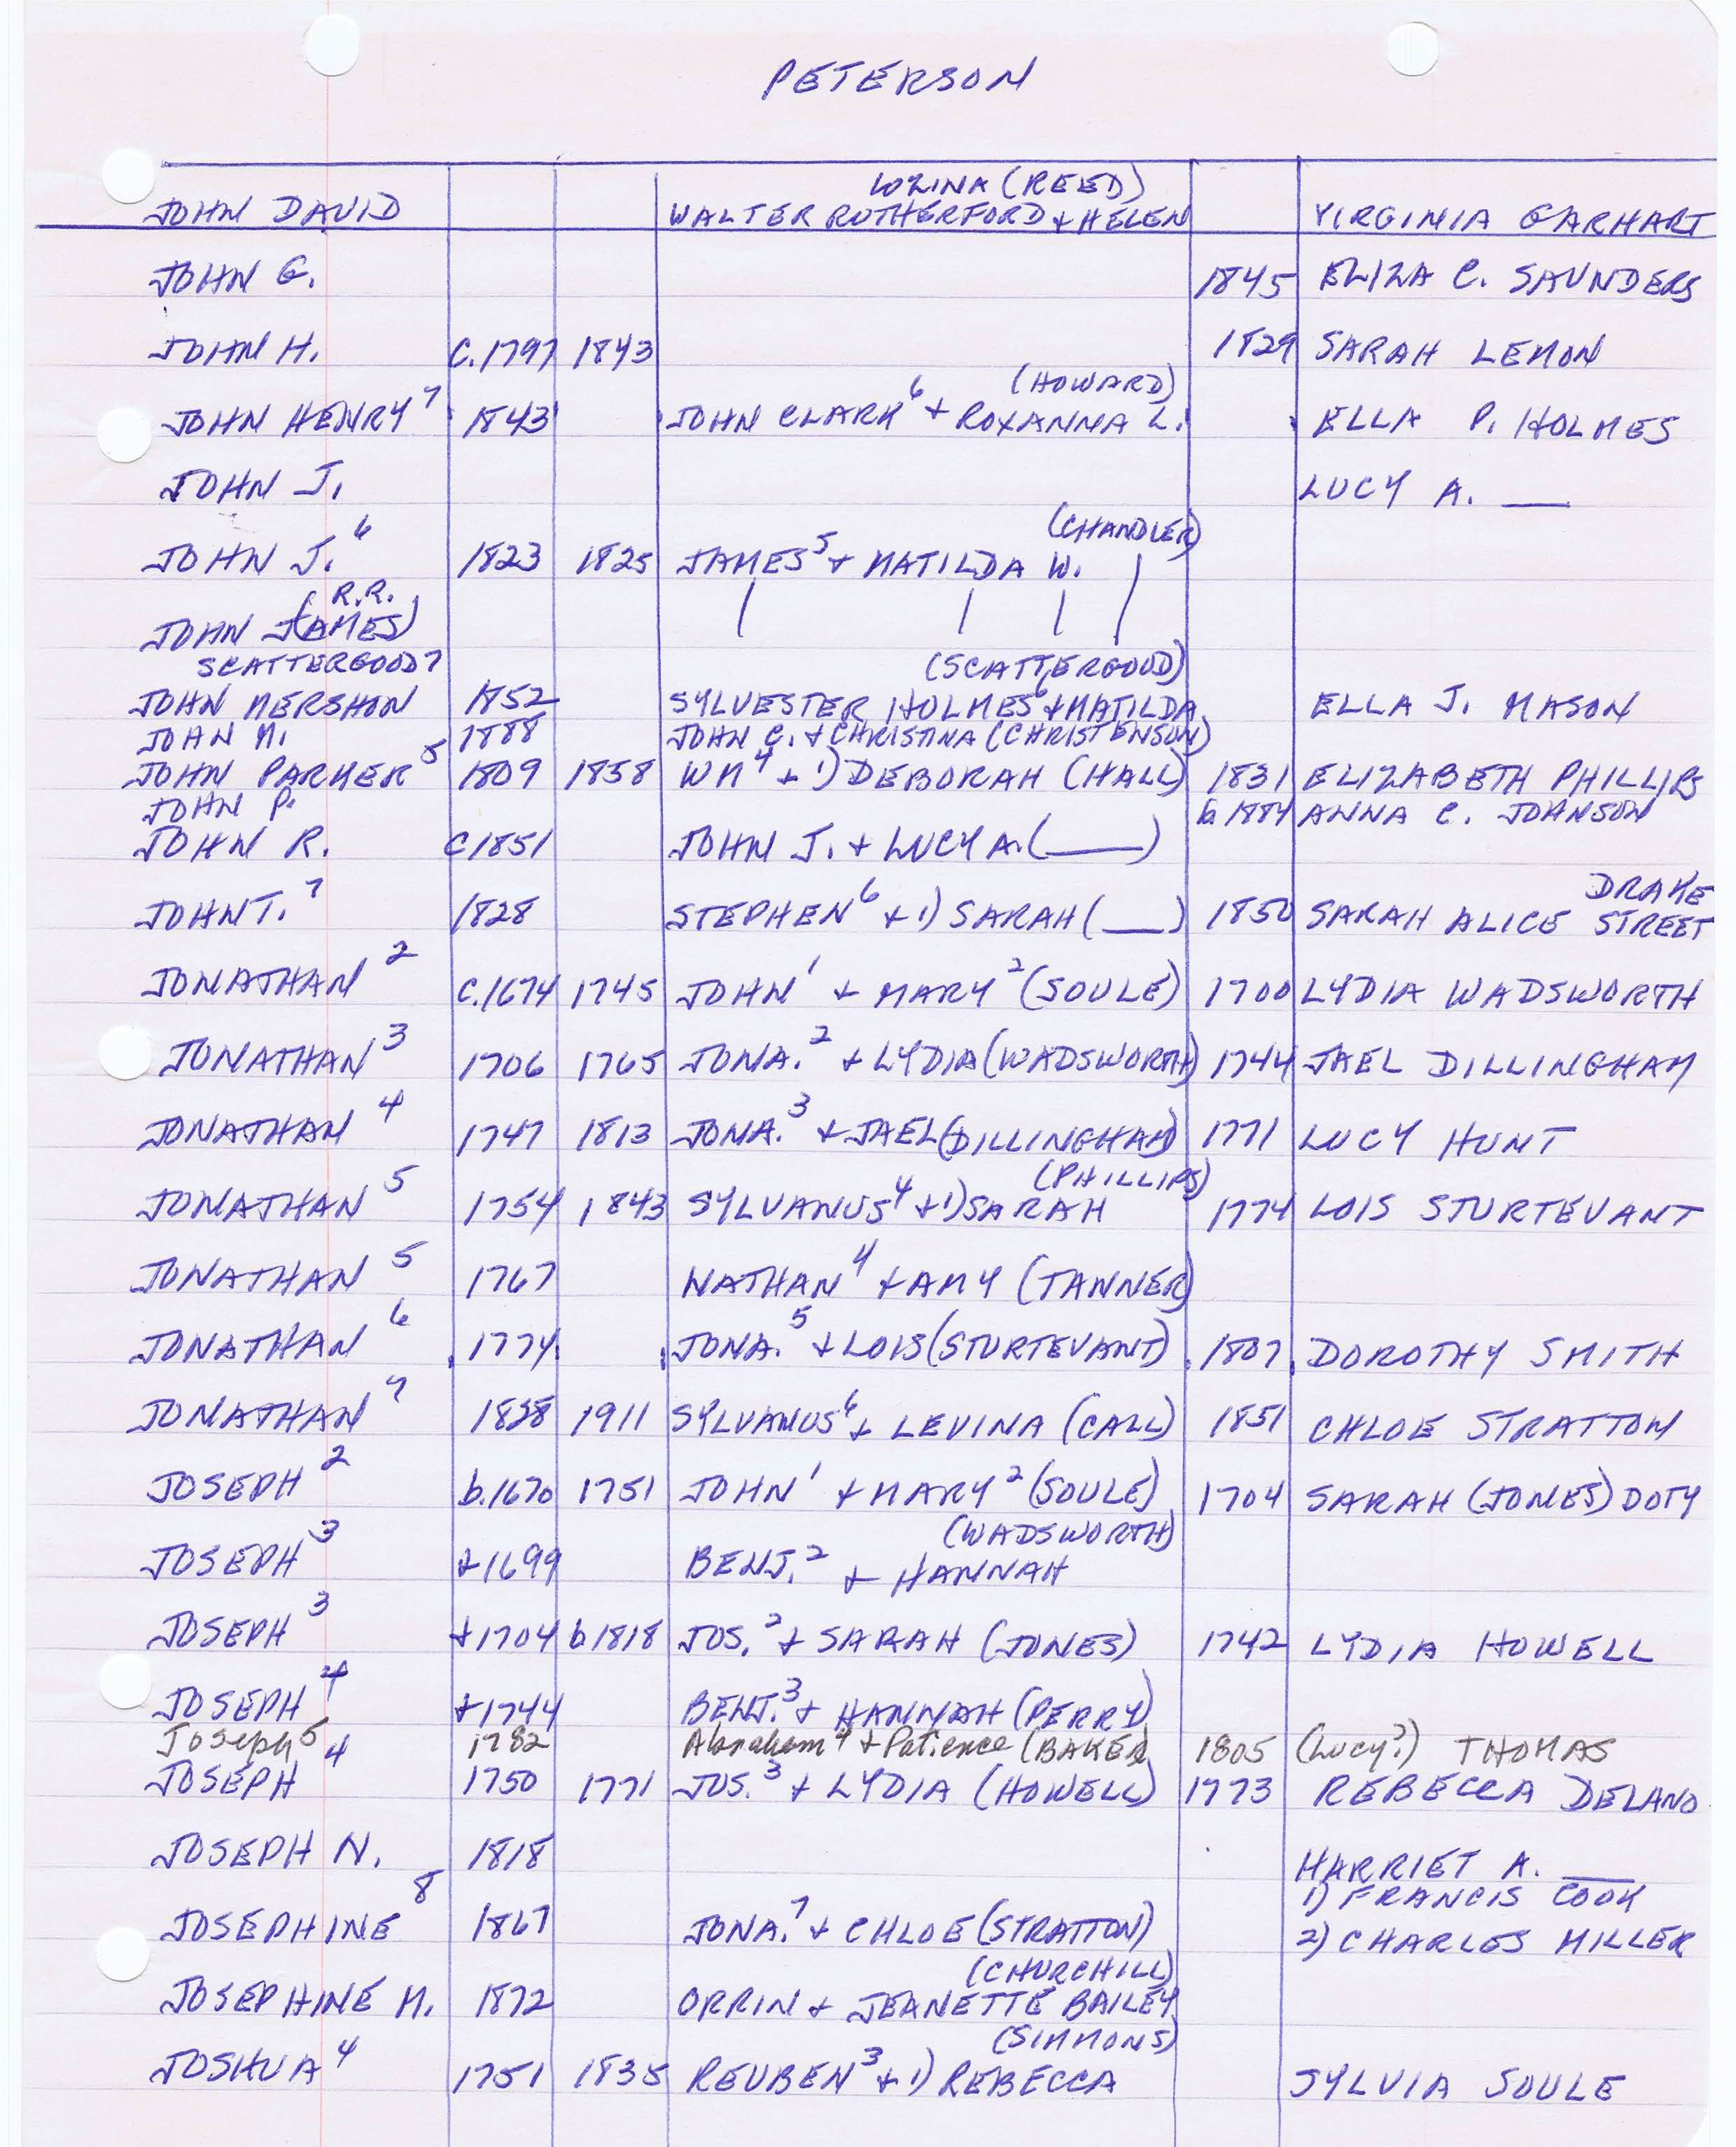 PETERSON
LOZINA (REED)
JOHN DAVID WALTER RUTHERFORD & HELEN VIRGINIA EARHART
JOHN G. 1845 ELIZA C. SAUNDERS
JOHN H. C.1797 1843 1829 SARAH LEMON
(HOWARD)
JOHN HENRY⁷ 1843 JOHN CLARK⁶ + ROXANNA L. ELLA P. HOLMES
JOHN J. LUCY A. ___
(CHANDLER)
JOHN J.⁶ 1823 1825 JAMES⁵ + MATILDA W.
R.R.
JOHN J(AMES)
SCATTERGOOD⁷ (SCATTERGOOD)
JOHN MERSHON 1852 SYLVESTER HOLMES⁶ + MATILDA ELLA J. MASON
JOHN M. 1888 JOHN C. + CHRISTINA (CHRISTENSON)
JOHN PARKER⁵ 1809 1858 WM⁴ + 1) DEBORAH (HALL) 1831 ELIZABETH PHILLIPS
JOHN P. b1884 ANNA C. JOHNSON
JOHN R. C1851 JOHN J. + LUCY A. (___)
DRAKE
JOHN T.⁷ 1828 STEPHEN⁶ + 1) SARAH (___) 1850 SARAH ALICE STREET
JONATHAN² C.1674 1745 JOHN¹ + MARY² (SOULE) 1700 LYDIA WADSWORTH
JONATHAN³ 1706 1765 JONA.² + LYDIA (WADSWORTH) 1744 JAEL DILLINGHAM
JONATHAN⁴ 1747 1813 JONA.³ + JAEL (DILLINGHAM) 1771 LUCY HUNT
(PHILLIPS)
JONATHAN⁵ 1754 1843 SYLVANUS⁴ + 1) SARAH 1774 LOIS STURTEVANT
JONATHAN⁵ 1767 NATHAN⁴ + AMY (TANNER)
JONATHAN⁶ 1774 JONA.⁵ + LOIS (STURTEVANT) 1807 DOROTHY SMITH
JONATHAN⁷ 1828 1911 SYLVANUS⁶ + LEVINA (CALL) 1851 CHLOE STRATTON
JOSEPH² b.1670 1751 JOHN¹ + MARY² (SOULE) 1704 SARAH (JONES) DOTY
(WADSWORTH)
JOSEPH³ +1699 BENJ.² + HANNAH
JOSEPH³ +1704 b1818 JOS.² + SARAH (JONES) 1742 LYDIA HOWELL
JOSEPH⁴ +1744 BENJ.³ + HANNAH (PERRY)
Joseph⁵ 1782 Abraham⁴ + Patience (BAKER) 1805 (Lucy?) THOMAS
JOSEPH⁴ 1750 1771 JOS.³ + LYDIA (HOWELL) 1773 REBECCA DELANO
JOSEPH N. 1818 HARRIET A. ___
1) FRANCIS COOK
JOSEPHINE⁸ 1867 JONA.⁷ + CHLOE (STRATTON) 2) CHARLES MILLER
(CHURCHILL)
JOSEPHINE M. 1872 ORRIN + JEANETTE BAILEY
(SIMMONS)
JOSHUA⁴ 1751 1835 REUBEN³ + 1) REBECCA SYLVIA SOULE